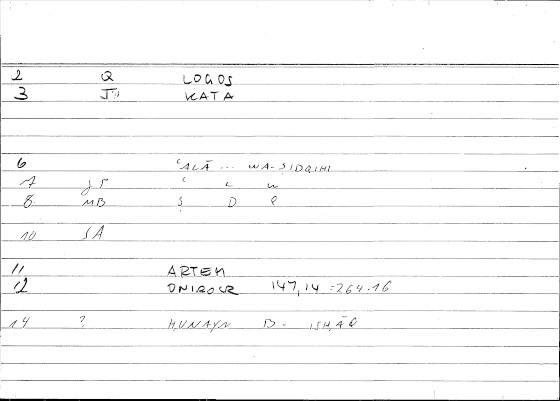 2 Q LOGOS
3 J KATA
6 ʿALĀ ... WA-ṢIDQIHI
7 ʿ L W
8 MB Ṣ D Q
10 SA
11 ARTEM
12 ONIROCR 147,14 = 264.16
14 ? ḤUNAYN B. ISḤĀQ